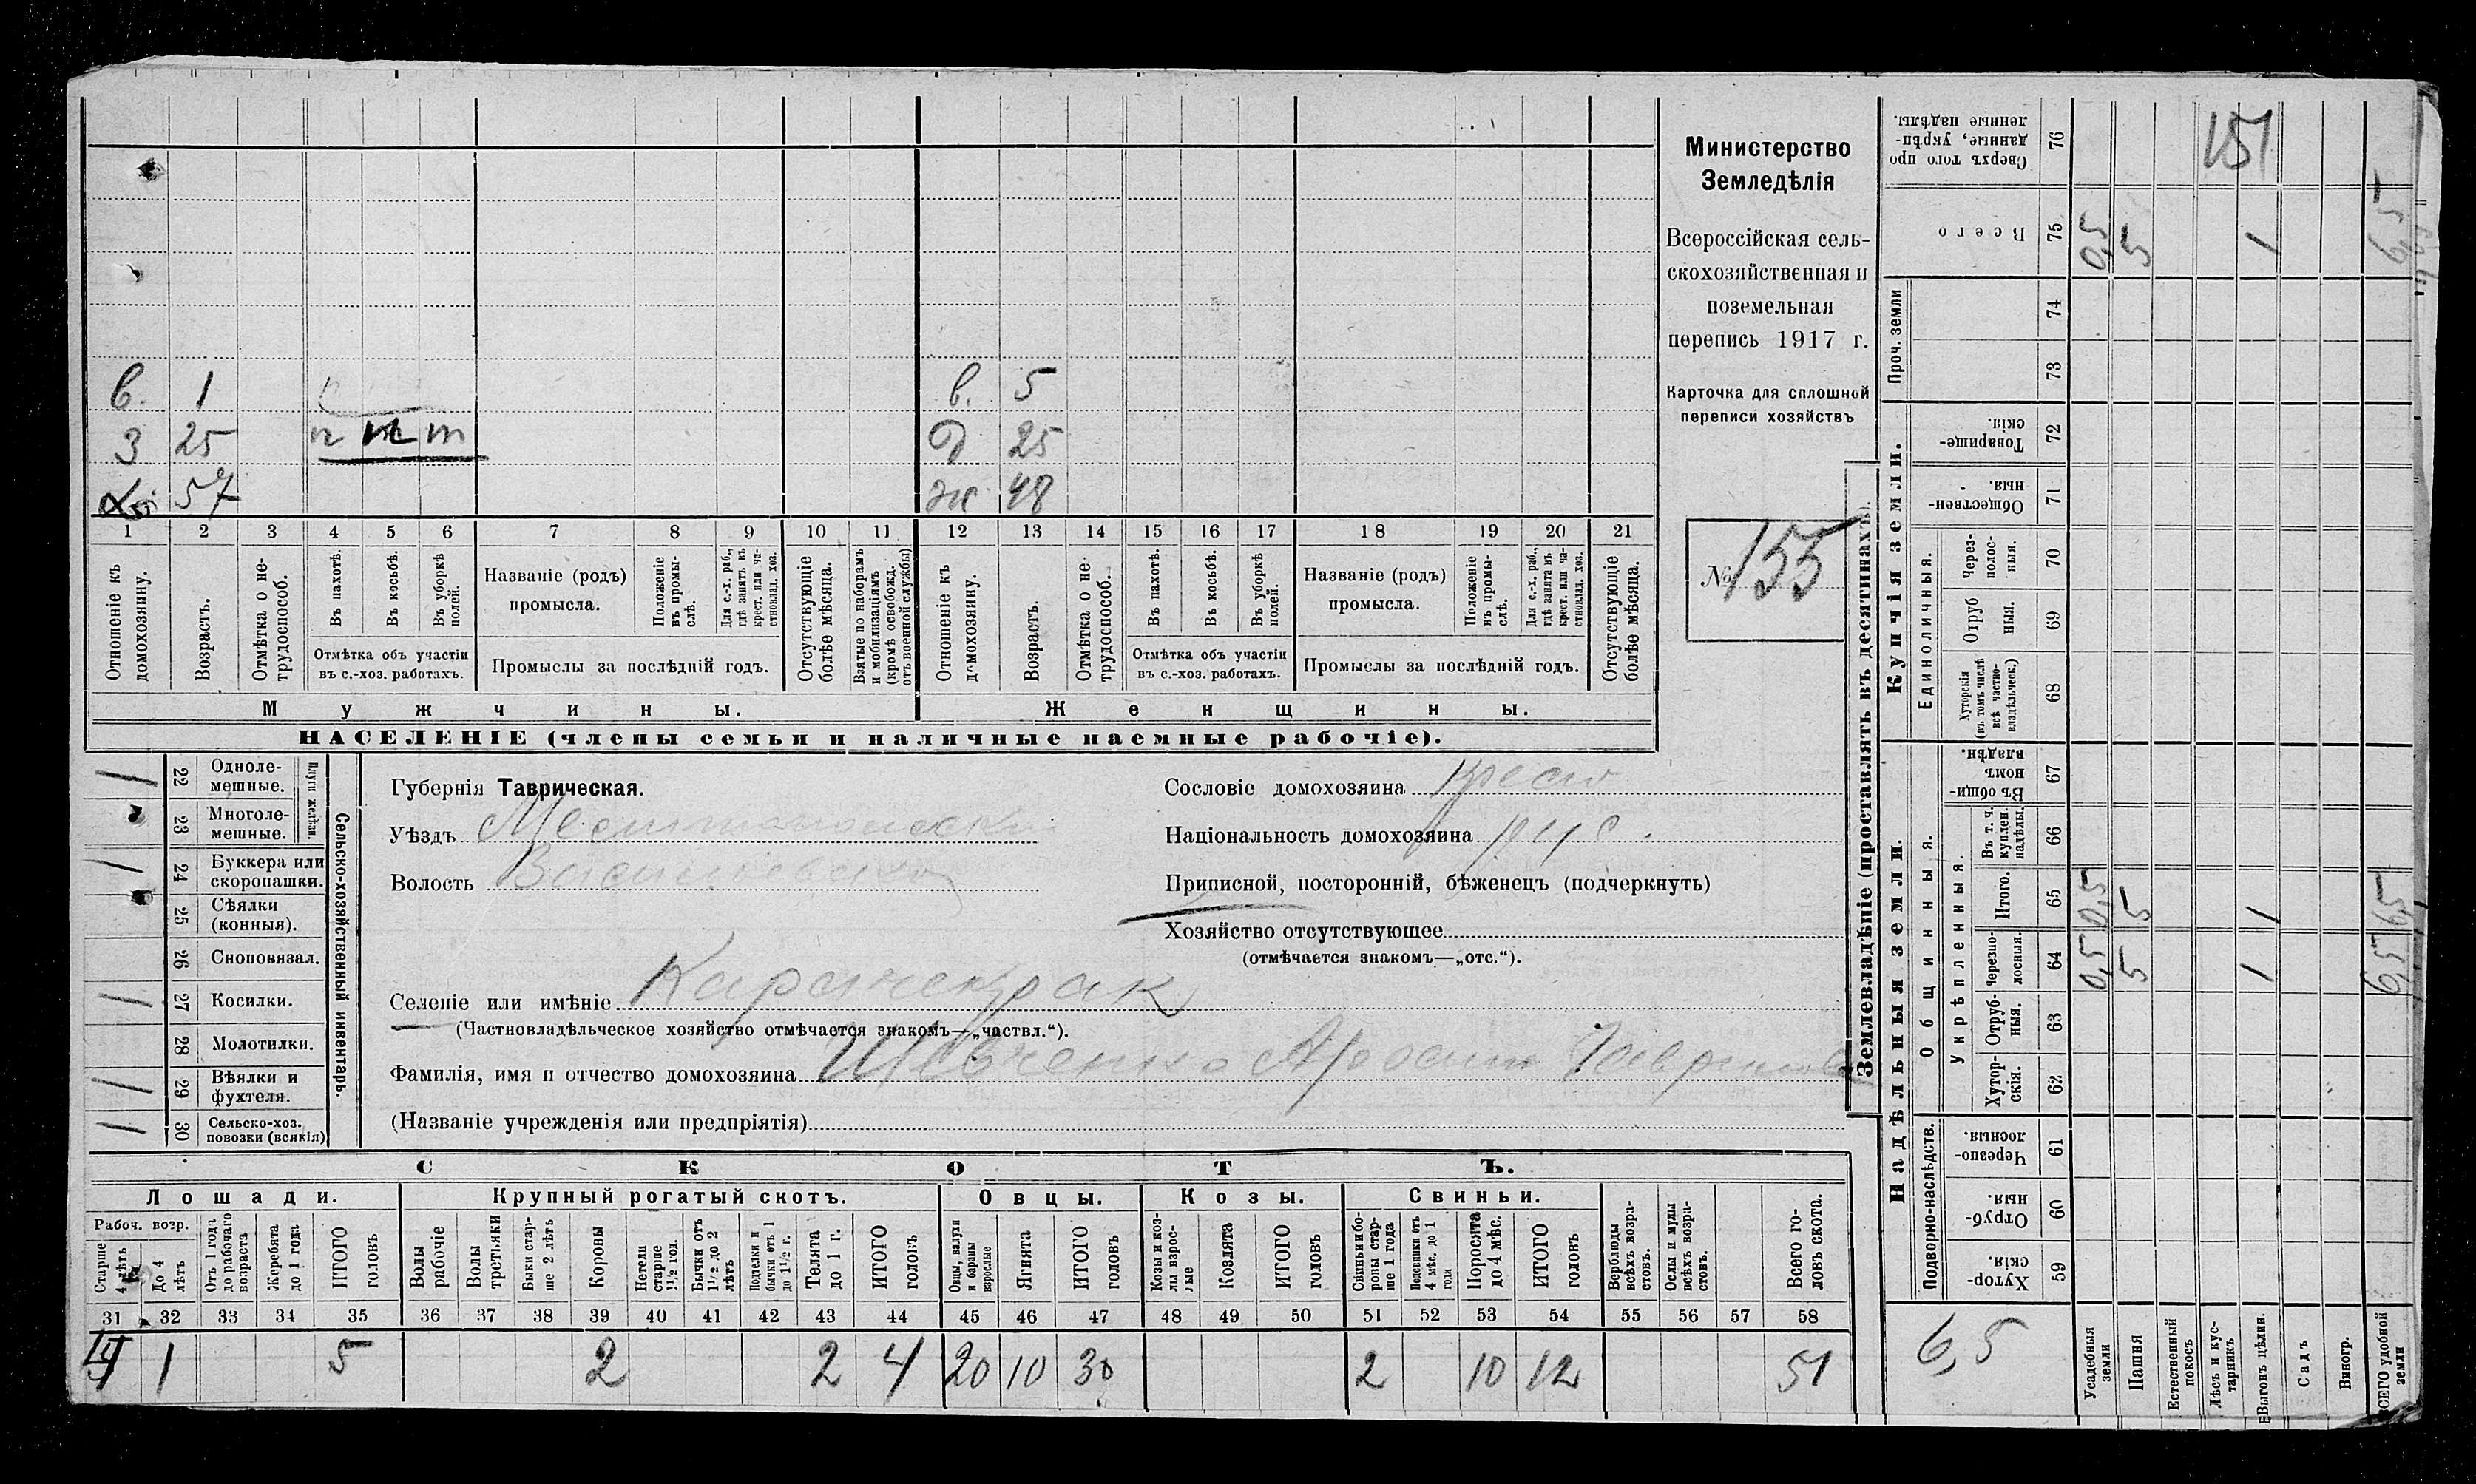 в. 1 в. 5
З 25 п т т д 25
Хоз 57 ж 48
1 2 3 4 5 6 7 8 9 10 11 12 13 14 15 16 17 18 19 20 21
Отношеніе къ домохозяину.
Возрастъ.
Отмѣтка о не-трудоспособ.
Въ пахотѣ.
Въ косьбѣ.
Въ уборкѣ полей.
Отмѣтка объ участіи
въ с.-хоз. работахъ.
Названіе (родъ)
промысла.
Положеніе въ промы-слѣ.
Для с.-х. раб., гдѣ занятъ въ крест. или ча-стновлад. хоз.
Промыслы за послѣдній годъ.
Отсутствующіе болѣе мѣсяца.
Взятые по наборамъ и мобилизаціямъ (кромѣ освобожд. отъ военной службы)
Отношеніе къ домохозяину.
Возрастъ.
Отмѣтка о не-трудоспособ.
Въ пахотѣ.
Въ косьбѣ.
Въ уборкѣ полей.
Отмѣтка объ участіи
въ с.-хоз. работахъ.
Названіе (родъ)
промысла.
Положеніе въ промы-слѣ.
Для с.-х. раб., гдѣ занята въ крест. или ча-стновлад. хоз.
Промыслы за послѣдній годъ.
Отсутствующіе болѣе мѣсяца.
Мужчины. Женщины.
НАСЕЛЕНІЕ (члены семьи и наличные наемные рабочіе).
Министерство
Земледѣлія
Всероссійская сель-
скохозяйственная и
поземельная
перепись 1917 г.
Карточка для сплошной
переписи хозяйствъ
№ 155
1 22 Одноле-мешные.
23 Многоле-мешные.
Плуги желѣзн.
1 24 Буккера или скоропашки.
25 Сѣялки (конныя).
26 Сноповязал.
1 27 Косилки.
28 Молотилки.
1 29 Вѣялки и фухтеля.
1 30 Сельско-хоз. повозки (всякія)
Сельско-хозяйственный инвентарь.
Губернія Таврическая.
Уѣздъ Мелитопольскій
Волость Васильевская
Селеніе или имѣніе Карачекрак
(Частновладѣльческое хозяйство отмѣчается знакомъ—„частвл.“).
Фамилія, имя и отчество домохозяина Шевченко Аѳосин Гаврилов
(Названіе учрежденія или предпріятія)
Сословіе домохозяина Крест
Національность домохозяина рус.
Приписной, посторонній, бѣженецъ (подчеркнуть)
Хозяйство отсутствующее
(отмѣчается знакомъ—„отс.“).
СКОТЪ.
Лошади. Крупный рогатый скотъ. Овцы. Козы. Свиньи.
Рабоч. возр.
Старше 4 лѣтъ
До 4 лѣтъ
Отъ 1 года до рабочаго возраста
Жеребята до 1 года
ИТОГО головъ
Волы рабочіе
Волы третьяки
Быки стар-ше 2 лѣтъ
Коровы
Нетели старше 1½ год.
Бычки отъ 1½ до 2 лѣтъ
Подтелки и бычки отъ 1 до 1½ г.
Телята до 1 г.
ИТОГО головъ
Овцы, валухи и бараны взрослые
Ягнята
ИТОГО головъ
Козы и коз-лы взрос-лые
Козлята
ИТОГО головъ
Свиньи и бо-ровы стар-ше 1 года
Подсвинки отъ 4 мѣс. до 1 года
Поросята до 4 мѣс.
ИТОГО головъ
Верблюды всѣхъ возра-стовъ.
Ослы и мулы всѣхъ возра-стовъ.
Всего го-ловъ скота.
31 32 33 34 35 36 37 38 39 40 41 42 43 44 45 46 47 48 49 50 51 52 53 54 55 56 57 58
4 1 5 2 2 4 20 10 30 2 10 12 51
Землевладѣніе (проставлять въ десятинахъ).
Купчія земли.
Надѣльныя земли.
Сверхъ того про-данные, укрѣп-ленные надѣлы. 76 151
Всего 75 0,5 5 1 6,5
Проч. земли 74
73
Товарище-скія. 72
Обществен-ныя. 71
Единоличныя.
Через-полос-ныя. 70
Отруб ныя. 69
Хуторскія (въ томъ числѣ всѣ частно-владѣльческ.) 68
Общинныя.
Въ общи-номъ владѣн. 67
Укрѣпленныя.
Въ т. ч. куплен. надѣлы. 66
Итого. 65 0,5 5 1 6,5
Черезпо-лосныя. 64 0,5 5 1 6,5
Отруб-ныя. 63
Хутор-скія. 62
Подворно-наслѣдств.
Черезпо-лосныя. 61
Отруб-ныя. 60
Хутор-скія. 59
6,5
Усадебныя земли
Пашня
Естественный покосъ
Лѣсъ и кус-тарникъ
Выгонъ цѣлин.
Садъ
Виногр.
ВСЕГО удобной земли